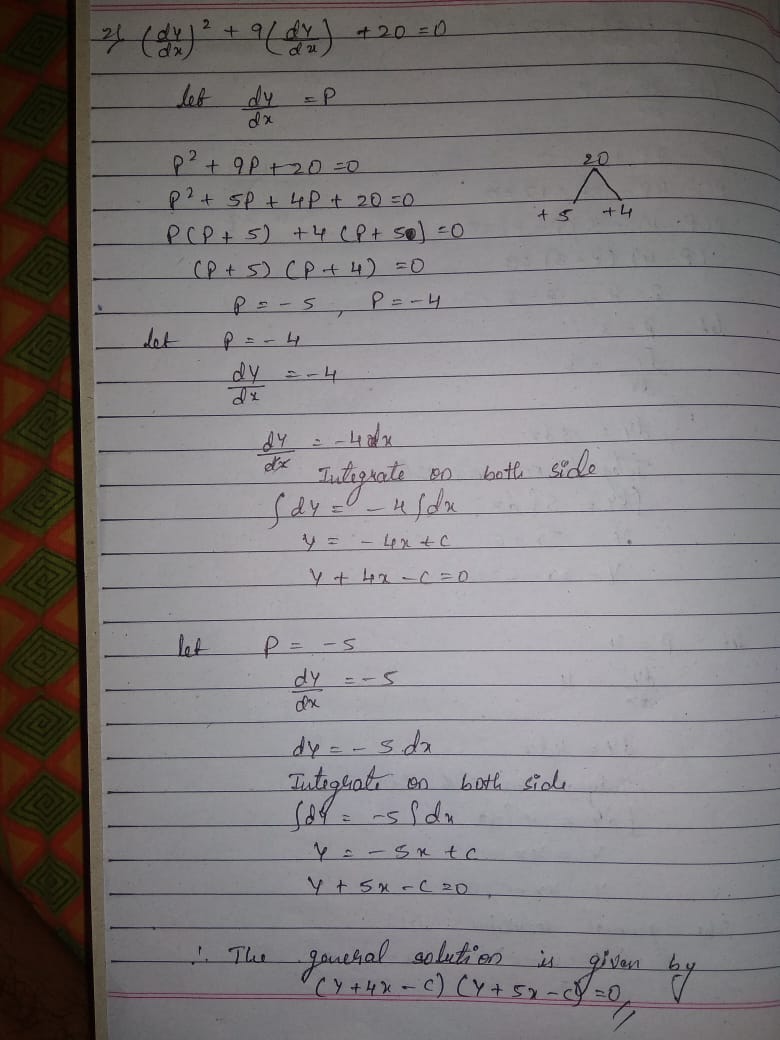 2) (dy/dx)² + 9(dy/dx) + 20 = 0
let dy/dx = P
P² + 9P + 20 = 0
20
P² + 5P + 4P + 20 = 0
+5 +4
P(P + 5) + 4(P + 5) = 0
(P + 5) (P + 4) = 0
P = -5, P = -4
let P = -4
dy/dx = -4
dy/dx = -4dx
Integrate on both side
∫dy = -4∫dx
y = -4x + c
y + 4x - c = 0
let P = -5
dy/dx = -5
dy = -5dx
Integrate on both side
∫dy = -5∫dx
y = -5x + c
y + 5x - c = 0
∴ The general solution is given by
(y + 4x - c) (y + 5x - c) = 0 //